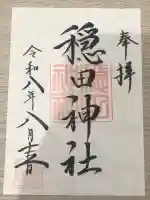 奉拝
穏田神社
令和八年八月吉日